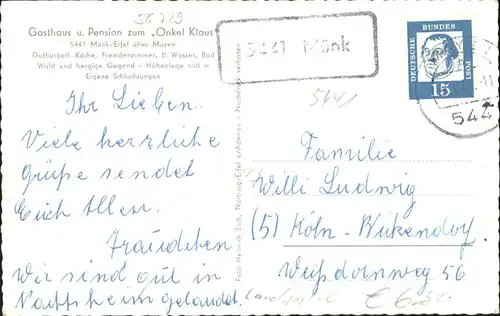 56729
Gasthaus u. Pension zum „Onkel Klaus"
5441 Mönk/Eifel über Mayen
Gutbürgerl. Küche, Fremdenzimmer, fl. Wasser, Bad
Wald und bergige Gegend - Höhenlage 550 m
Eigene Schlachtungen
5441 Mönk
5441
DEUTSCHE BUNDESPOST
15
544
Ihr Lieben.
Viele herzliche
Grüße sendet
Euch Allen.
Fraudchen
Wir sind gut in
gelandet.
Foto Heinrich Esch, Nürburg/Eifel
Nachdruck verboten
Familie
Willi Ludwig
(5) Köln-Bickendorf
Weißdornweg 56
€ 6,-